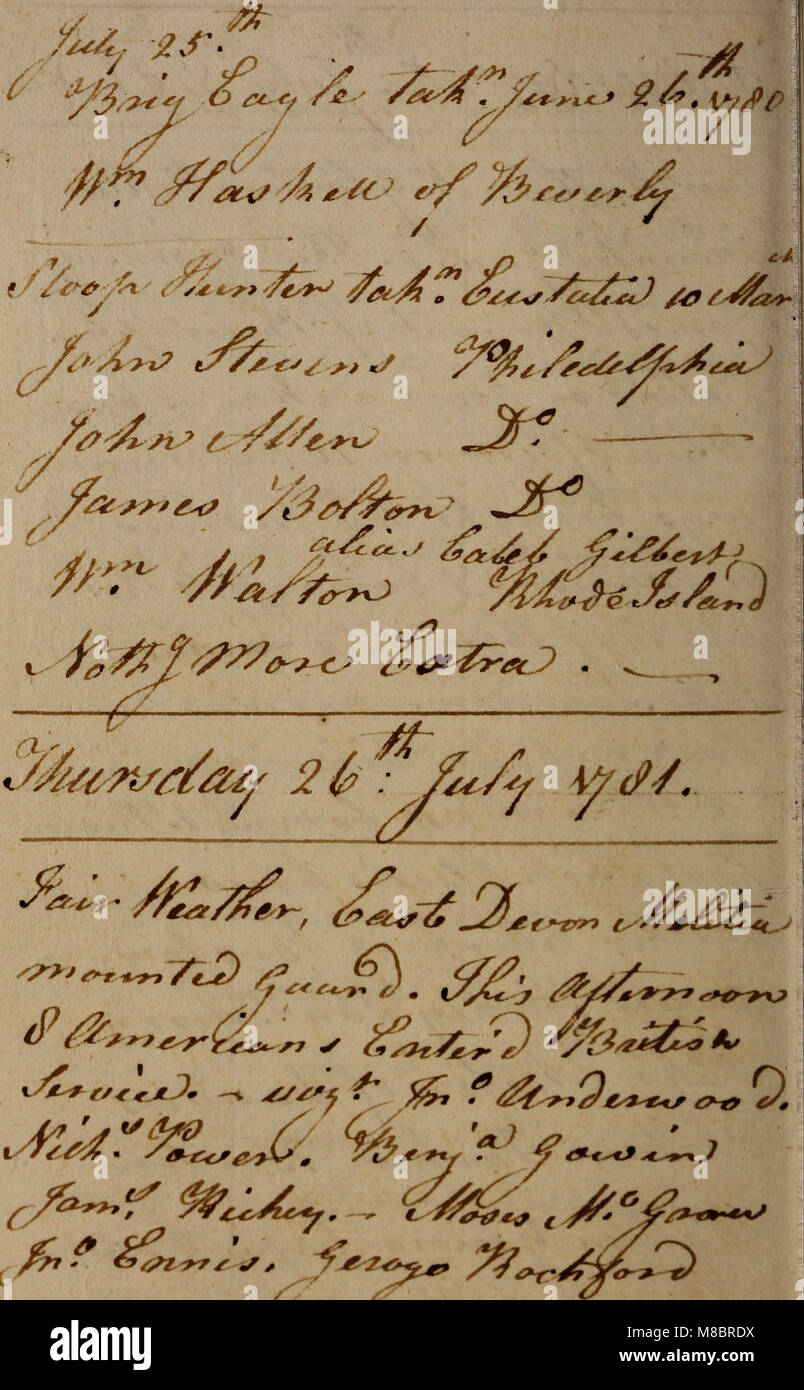 July 25.th
Brig Eagle takn. June 26.th 1780
Wm. Haskell of Beverly
Sloop Hunter takn. Eustatia 10 Mar
John Stevens Philedelphia
John Allen Do. —
James Bolton Do
alias Caleb Gilbert
Wm. Walton Rhode Island
Nothg More Extra. —
Thursday 26th: July 1781.
Fair Weather, East Devon Melitia
mounted Guard. This Afternoon
8 Americans Enter'd British
Service. - vizt. Jno. Underwood.
Nichs. Power. Benja. Gowin
Jams. Richey. - Moses Mc.
Jno. Ennis. Gerogo Rochford
alamy
Image ID: M8BRDX
www.alamy.com